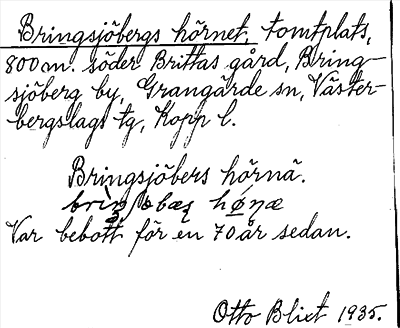 Bringsjöbergs hörnet, tomtplats,
800 m. söder Brittas gård, Bring-
sjöberg by, Grangärde sn, Väster-
bergslags tg, Kopp l.
Bringsjöbers hörnä.
Var bebott för en 70 år sedan.
Otto Blixt 1935.